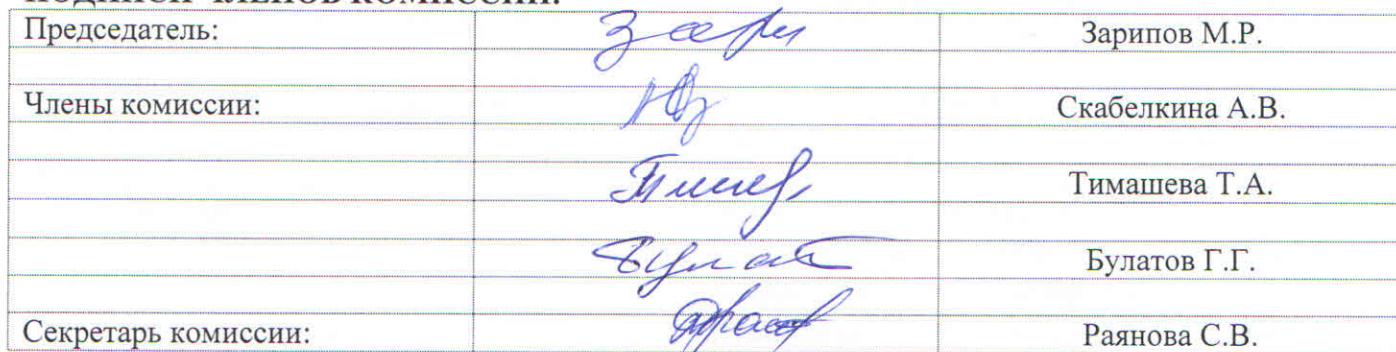 ПОДПИСИ ЧЛЕНОВ КОМИССИИ:
Председатель: Зарипов М.Р.
Члены комиссии: Скабелкина А.В.
Тимашева Т.А.
Булатов Г.Г.
Секретарь комиссии: Раянова С.В.